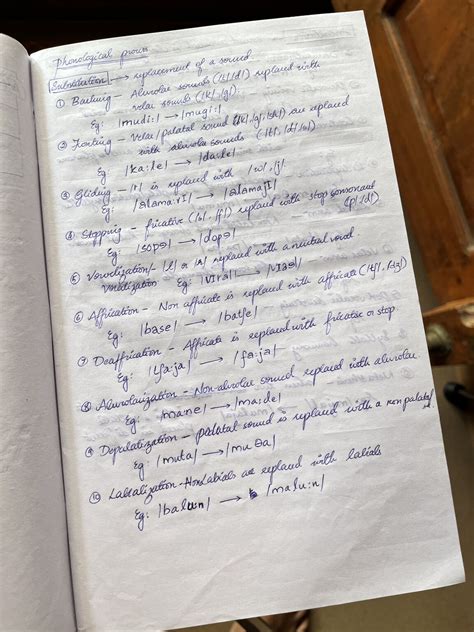 Phonological process
Substitution → replacement of a sound
① Backing – Alveolar sounds (|t|,|d|) replaced with
velar sounds (|k|,|g|).
Eg: |mudi:| → |mugi:|
② Fronting – Velar/palatal sound (|k|,|g|, are replaced
with alveolar sounds (|t|, |d|,
Eg: |ka:le| → |da:le|
③ Gliding – |r| is replaced with |w|, |j|
Eg: |alamarI| → |alamajI|
④ Stopping – fricative (|s|, |f|) replaced with stop consonant
(|p|,|d|)
Eg: |sopə| → |dopə|
⑤ Vowelization/ – |l| or replaced with a neutral vowel
Vocalization Eg: |vIral| →
⑥ Affrication – Non affricate is replaced with affricate (|tʃ|,
Eg: |base| → |batʃe|
⑦ Deaffrication – Affricate is replaced with fricative or stop.
Eg: |tʃa:ja| → |ʃa:ja|
⑧ Alveolarization – Non-alveolar sound replaced with alveolar.
Eg: |mane| → |ma:de|
⑨ Depalatization – palatal sound is replaced with a non palatal
Eg: |muta| → |muθa|
⑩ Labialization – Non Labials are replaced with labials
Eg: |balu:n| → |malu:n|